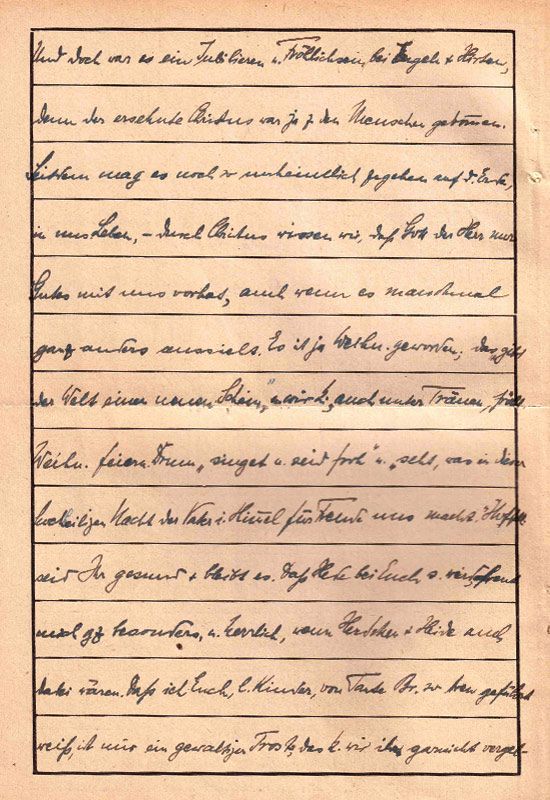 Und doch war es ein Jubilieren u. Fröhlichsein bei Engeln + Hirten,
denn der ersehnte Christus war ja z. den Menschen gekommen.
Seitdem mag es noch so unheimlich zugehen auf d. Erde,
in uns. Leben, – durch Christus wissen wir, daß Gott der Herr nur
Gutes mit uns vorhat, auch wenn es manchmal
ganz anders aussieht. Es ist ja Weihn. geworden, das „gibt
der Welt einen neuen Schein", u. wir k. auch unter Tränen, fröhl.
Weihn. feiern. Drum „singet u. seid froh" u. „seht, was in dieser
hochheiligen Nacht der Vater i. Himmel für Freude uns macht." Hofftl.
seid Ihr gesund + bleibt es. Daß bei Euch s. wird, freut
mich gz besonders, u. herrlich, wenn + Heide auch
dabei wären. Daß ich Euch, l. Kinder, von Tante Br. so treu geführt
weiß, ist mir ein gewaltiger Trost, das k. wir ihr garnicht vergel-